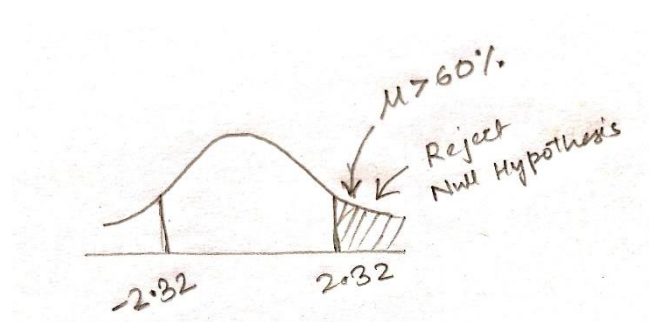 μ>60%.
Reject
Null Hypothesis
-2.32
2.32